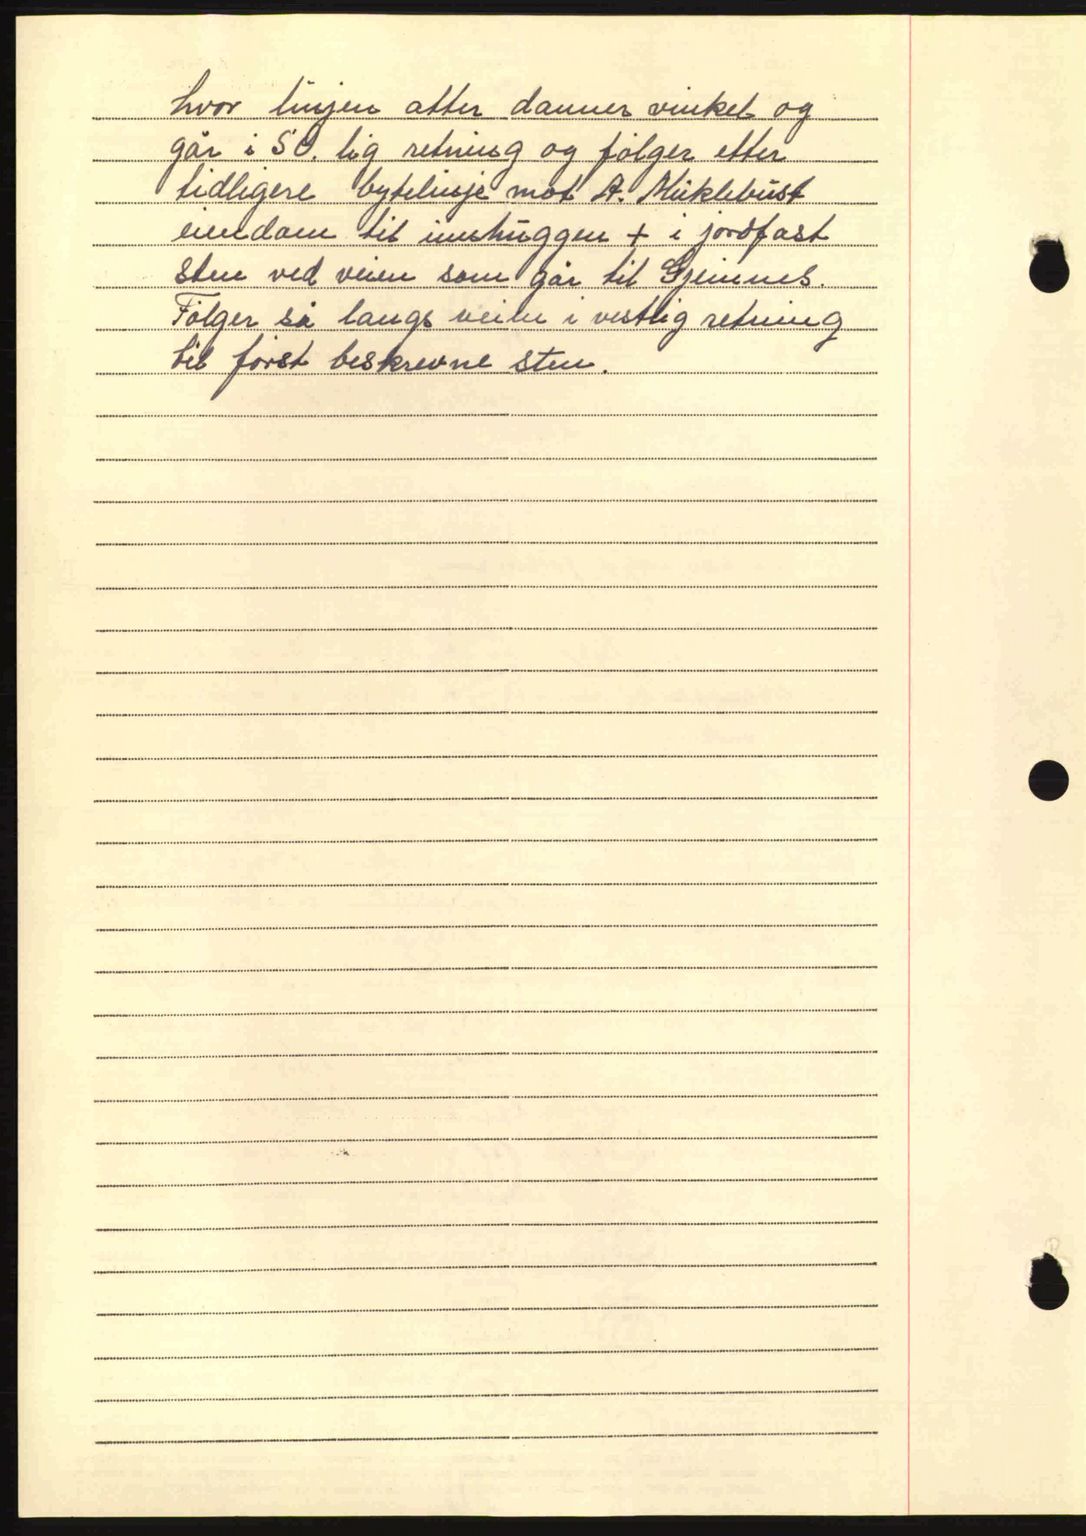 hvor linjen atter danner vinkel og
går i SO. lig retning og følger etter
tidligere bytelinje mot A. Mücklebust
eiendom til innhuggen + i jordfast
sten ved veien som går til Gjemnes.
Følger så langs veien i vestlig retning
til først beskrevne sten.